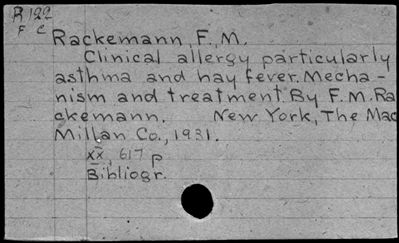 R 122
F C
Rackemann, F. M.
Clinical allergy particularly
asthma and hay fever. Mecha-
nism and treatment By F. M. Ra
ckemann. New York, The Mac
Millan Co., 1931.
xx, 617 p
Bibliogr.